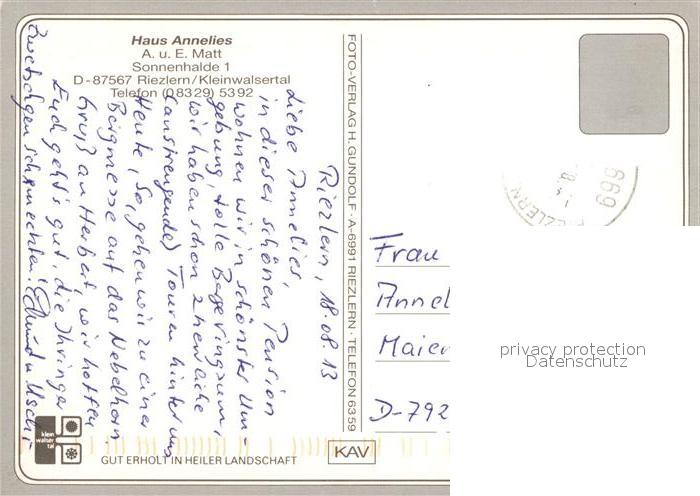 Haus Annelies
A. u. E. Matt
Sonnenhalde 1
D-87567 Riezlern/Kleinwalsertal
Telefon (08329) 5392
Riezlern, 18.08.13
Liebe Annelies,
in dieser schönen Pension
wohnen wir in schönster Um-
gebung, tolle Berge ringsum,
wir haben schon zahlreiche
(anstrengende) Touren hinter uns
Heute, So, gehen wir zu einer
Bergmesse auf das Nebelhorn
Gruß an Herbert, wir hoffen
Euch geht's gut, die Ihringer
Zwetschgen schmeckten!
FOTO-VERLAG H. GUNDOLF · A-6991 RIEZLERN · TELEFON 6359
Frau
Annel
Maier
D-792
privacy protection
Datenschutz
klein
walser
tal
GUT ERHOLT IN HEILER LANDSCHAFT
KAV